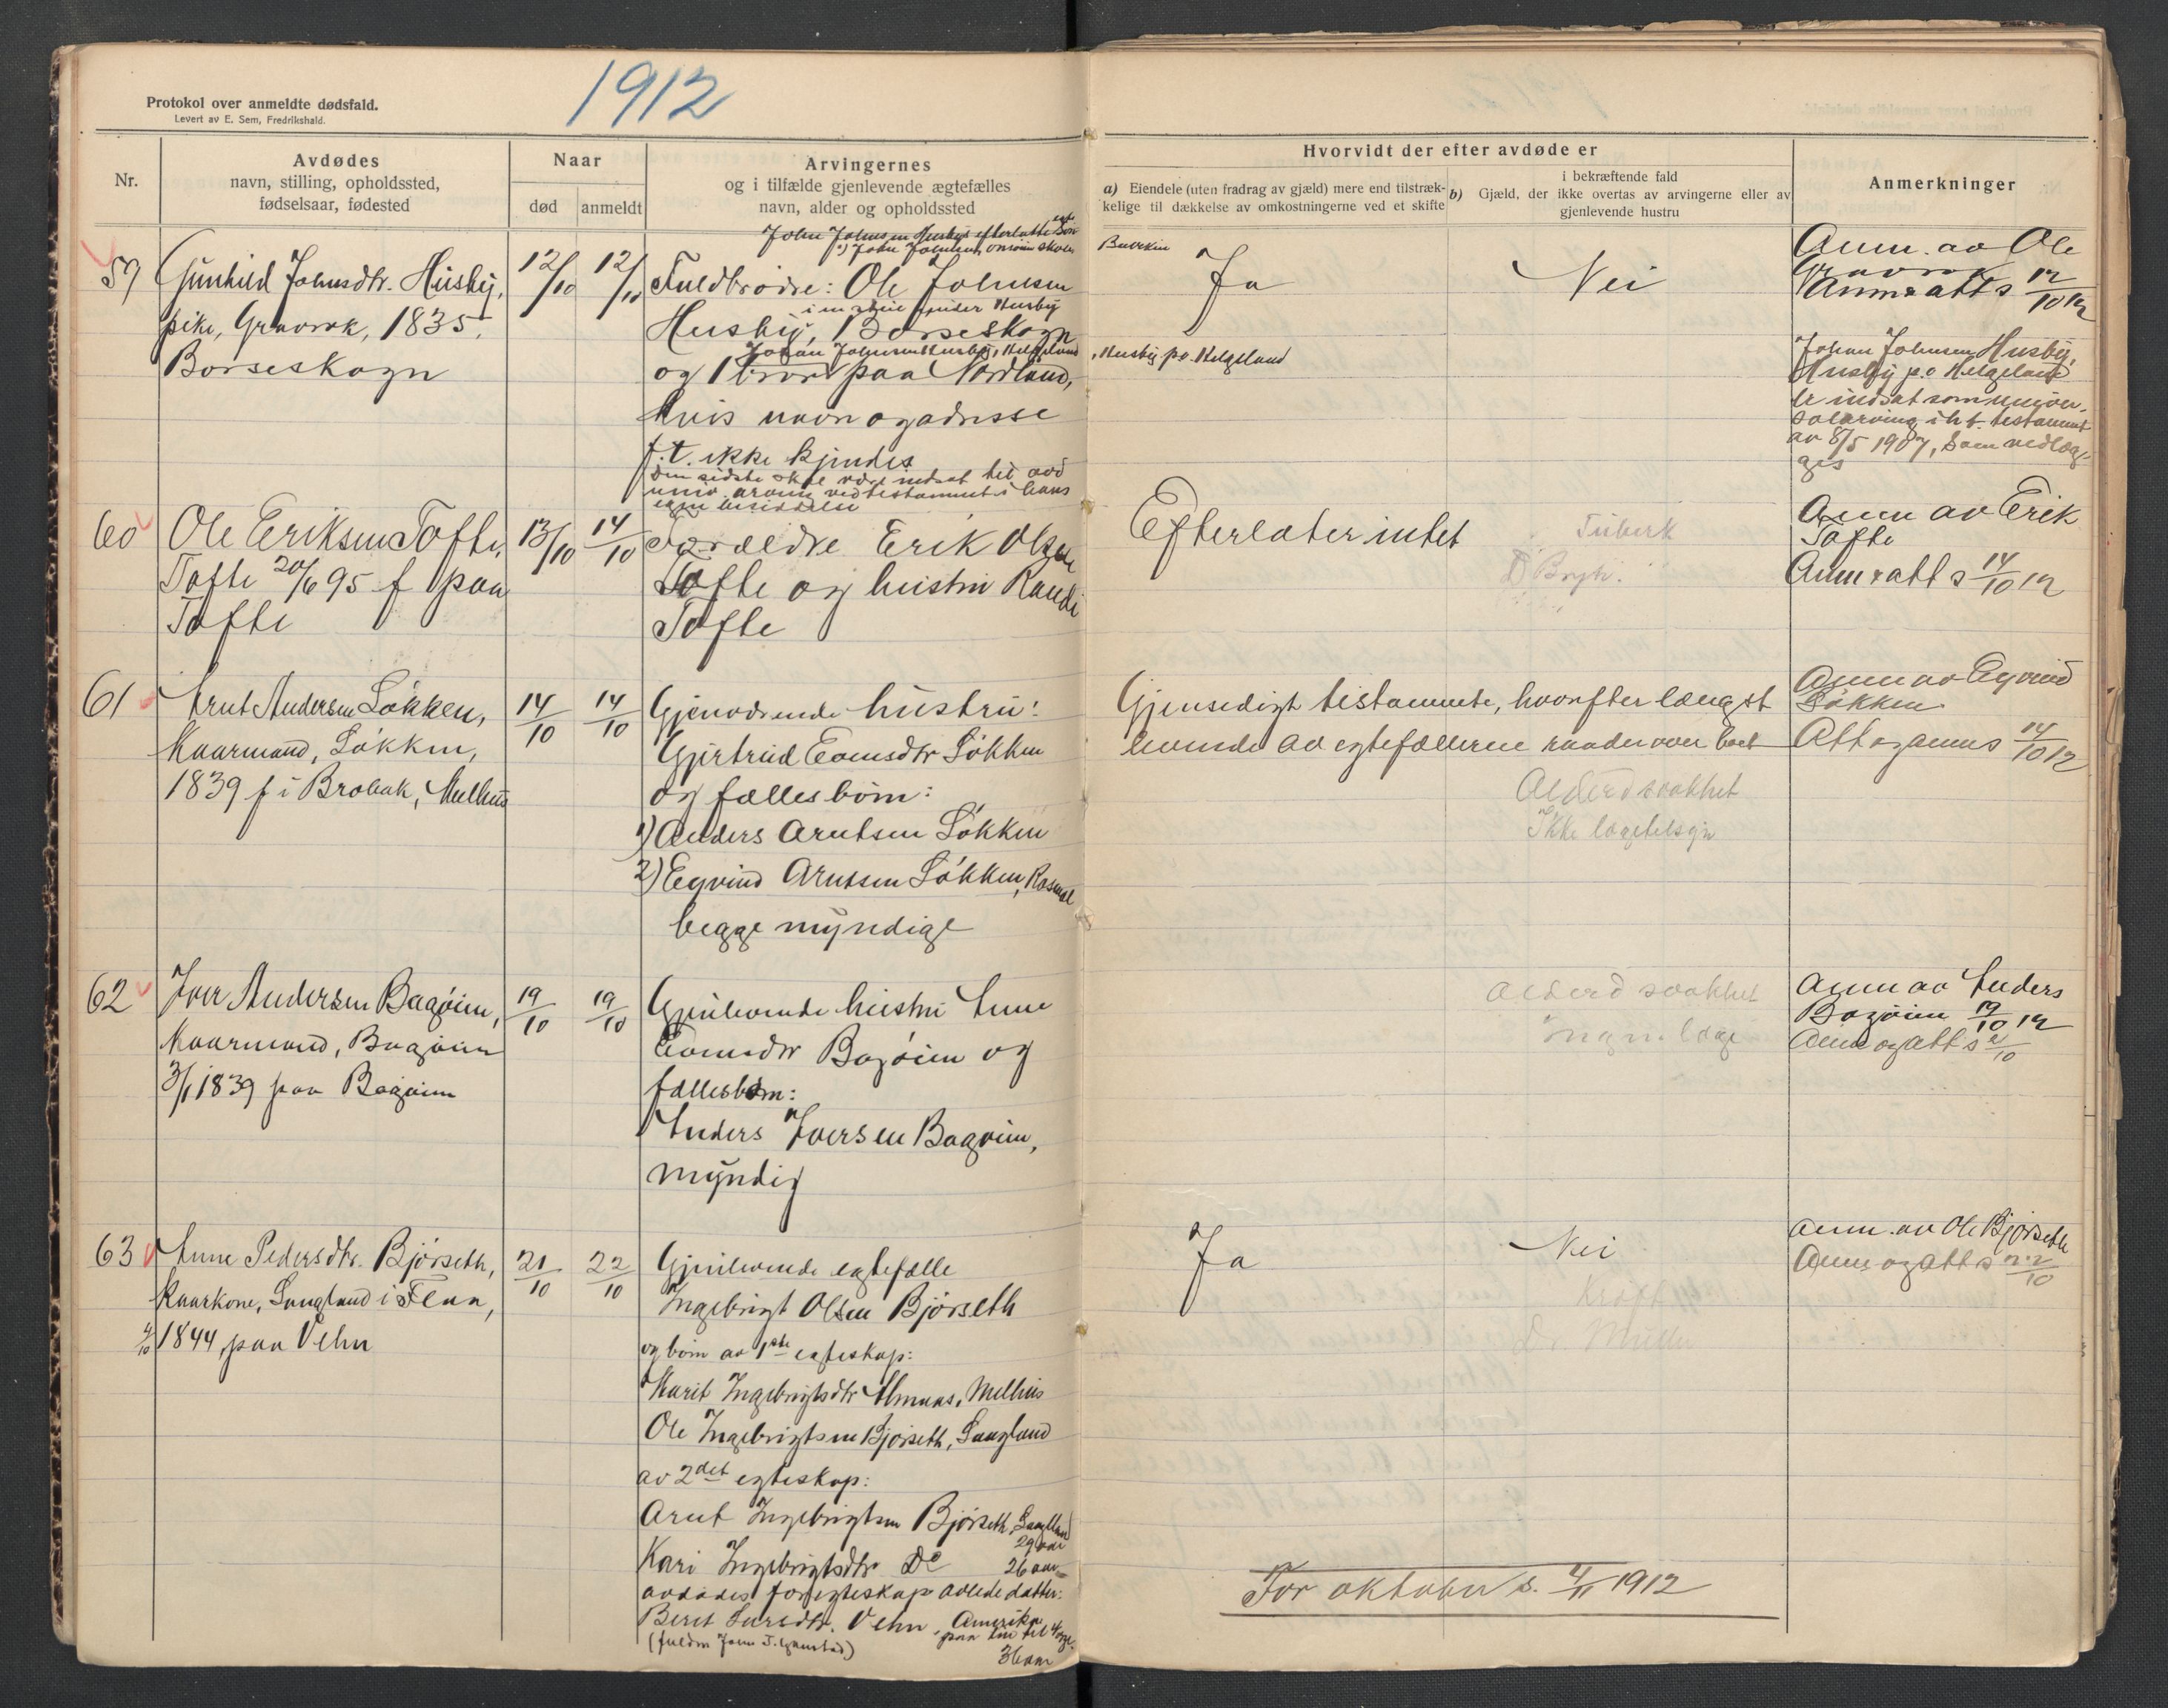 1912
Protokol over anmeldte dødsfald.
Levert av E. Sem, Fredrikshald.
Nr.
Avdødes
navn, stilling, opholdssted,
fødselsaar, fødested
Naar
død
anmeldt
Arvingernes
og i tilfælde gjenlevende ægtefælles
navn, alder og opholdssted
Hvorvidt der efter avdøde er
a) Eiendele (uten fradrag av gjæld) mere end tilstræk-
kelige til dækkelse av omkostningerne ved et skifte
i bekræftende fald
b) Gjæld, der ikke overtas av arvingerne eller av
gjenlevende hustru
Anmerkninger
59
Gunhild Johnsdtr. Husby,
pike, Gravrok, 1835,
Børseskogn
12/10
12/10
John Johnsen Husbys efterlatte
Fuldbrødre: Ole Johnsen
under Husby
Husby, Børseskogn
Johan Johnsen Husby, Helgeland, Husby p.o. Helgeland
og 1 bror paa Nordland,
hvis navn og adresse
f.t. ikke kjendes
Den sidste skal være indsat til
univ. arving ved testament i hans
egen besiddelse
Ja
Nei
Anm. av Ole
Gravrok
Anm & att s 12/10 12
Johan Johnsen Husby,
Husby p.o Helgeland
er indsat som univer-
salarving i h.t. testament
av 8/5 1907, som vedlæg-
ges
60
Ole Eriksen Tofte,
Tofte 20/6 95 f paa
Tofte
13/10
14/10
Forældre Erik Olsen
Tofte og hustru Randi
Tofte
Efterlater intet
Tuberk
D Bryh.
Anm av Erik
Tofte
Anm & att s 14/10 12
61
Arnt Andersen Løkken,
Kaarmand, Løkken,
1839 f i Brobak, Melhus
14/10
14/10
Gjenværende hustru:
Gjertrud Eomsdtr Løkken
og fælles børn:
1) Anders Arntsen Løkken
2) Eyvind Arntsen Løkken, Rosmæl
begge myndige
Gjensedigt testamente, hvorefter længst
levende av egtefællerne raader over boet
Alderdsvakhet
Ikke lægetilsyn
Anm av Eyvind
Løkken
Att og anm s 14/10 12
62
Iver Andersen Bagøien,
Kaarmand, Bagøien
3/1 1839 paa Bagøien
19/10
19/10
Gjenlevende hustru Anne
Eomsdtr Bagøien og
fællesbarn:
Anders Iversen Bagøien,
myndig
Alderdsvakhet
ingen læge
Anm av Anders
Bagøien 19/10 12
Anm og att s 2/10
63
Anne Pedersdtr. Bjørseth,
Kaarkone, Langland i Flaa,
4/10 1844, paa Vehn
21/10
22/10
Gjenlevende egtefælle
Ingebrigt Olsen Bjørseth
og børn av 1ste egteskap:
Marit Ingebrigtsdtr Almaas, Melhus
Ole Ingebrigtsen Bjørseth, Langland
av 2det egteskap:
Arnt Ingebrigtsen Bjørseth, Langland
29 aar
Kari Ingebrigtsdtr Do 26 aar
avdødes før egteskap avlede datter:
Beret Larsdtr. Vehn, Amerika,
paa tur til Norge.
36 aar
Ja
Nei
Kræft
Dr Müller
Anm. av Ole Bjørseth
Anm og att s 22/10
For oktober s. 4/11 1912